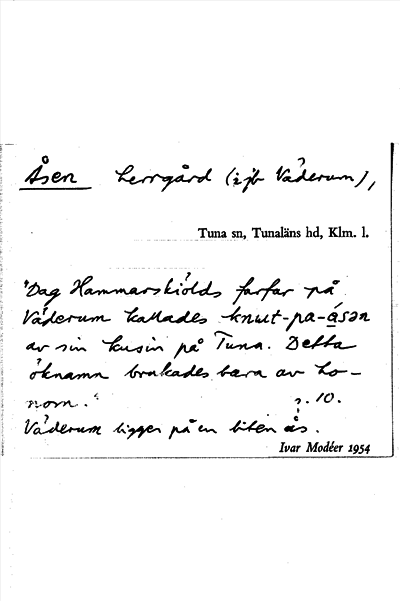 Åsen herrgård (=jfr Väderum),
Tuna sn, Tunaläns hd, Klm. l.
"Dag Hammarskiölds farfar på
Väderum kallades knut-pa-åsən
av sin kusin på Tuna. Detta
öknamn brukades bara av ho-
nom." s. 10.
Väderum ligger på en liten ås.
Ivar Modéer 1954